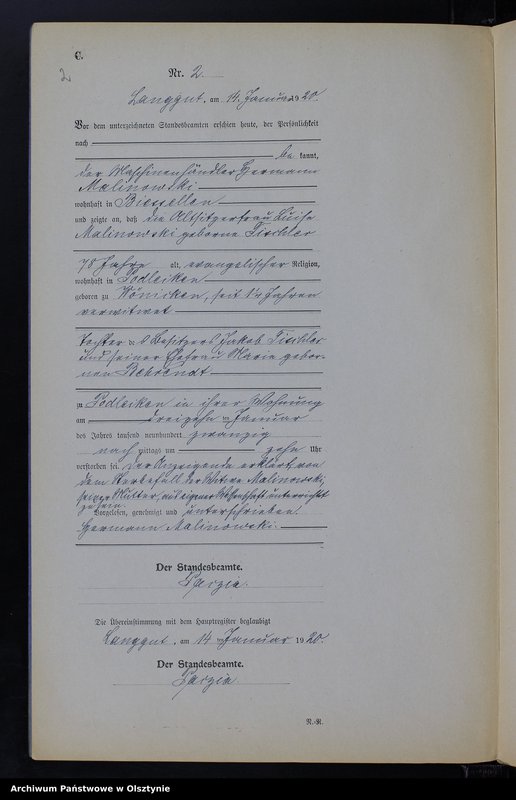 C.
2
Nr. 2.
Langgut, am 14. Januar 1920.
Vor dem unterzeichneten Standesbeamten erschien heute, der Persönlichkeit
nach
bekannt,
der Maschinenhändler Hermann
Malinowski
wohnhaft in Biessellen
und zeigte an, daß die Altsitzerfrau Luise
Malinowski geborne Tischler
78 Jahre alt, evangelischer Religion,
wohnhaft in Podleiken
geboren zu Wönicken, seit 1¼ Jahren
verwitwet
Tochter des Besitzers Jakob Tischler
und seiner Ehefrau Marie gebor-
nen Behrendt
zu Podleiken in ihrer Wohnung
am dreizehnten Januar
des Jahres tausend neunhundert zwanzig
nachmittags um zehn Uhr
verstorben sei. Der Anzeigende erklärt, von
dem Sterbefall der Witwe Malinowski,
seiner Mutter, aus eigner Wissenschaft unterrichtet
zu sein.
Vorgelesen, genehmigt und unterschrieben.
Hermann Malinowski.
Der Standesbeamte.
Die Übereinstimmung mit dem Hauptregister beglaubigt
Langgut, am 14ten Januar 1920.
Der Standesbeamte.
N.-R.
Archiwum Państwowe w Olsztynie